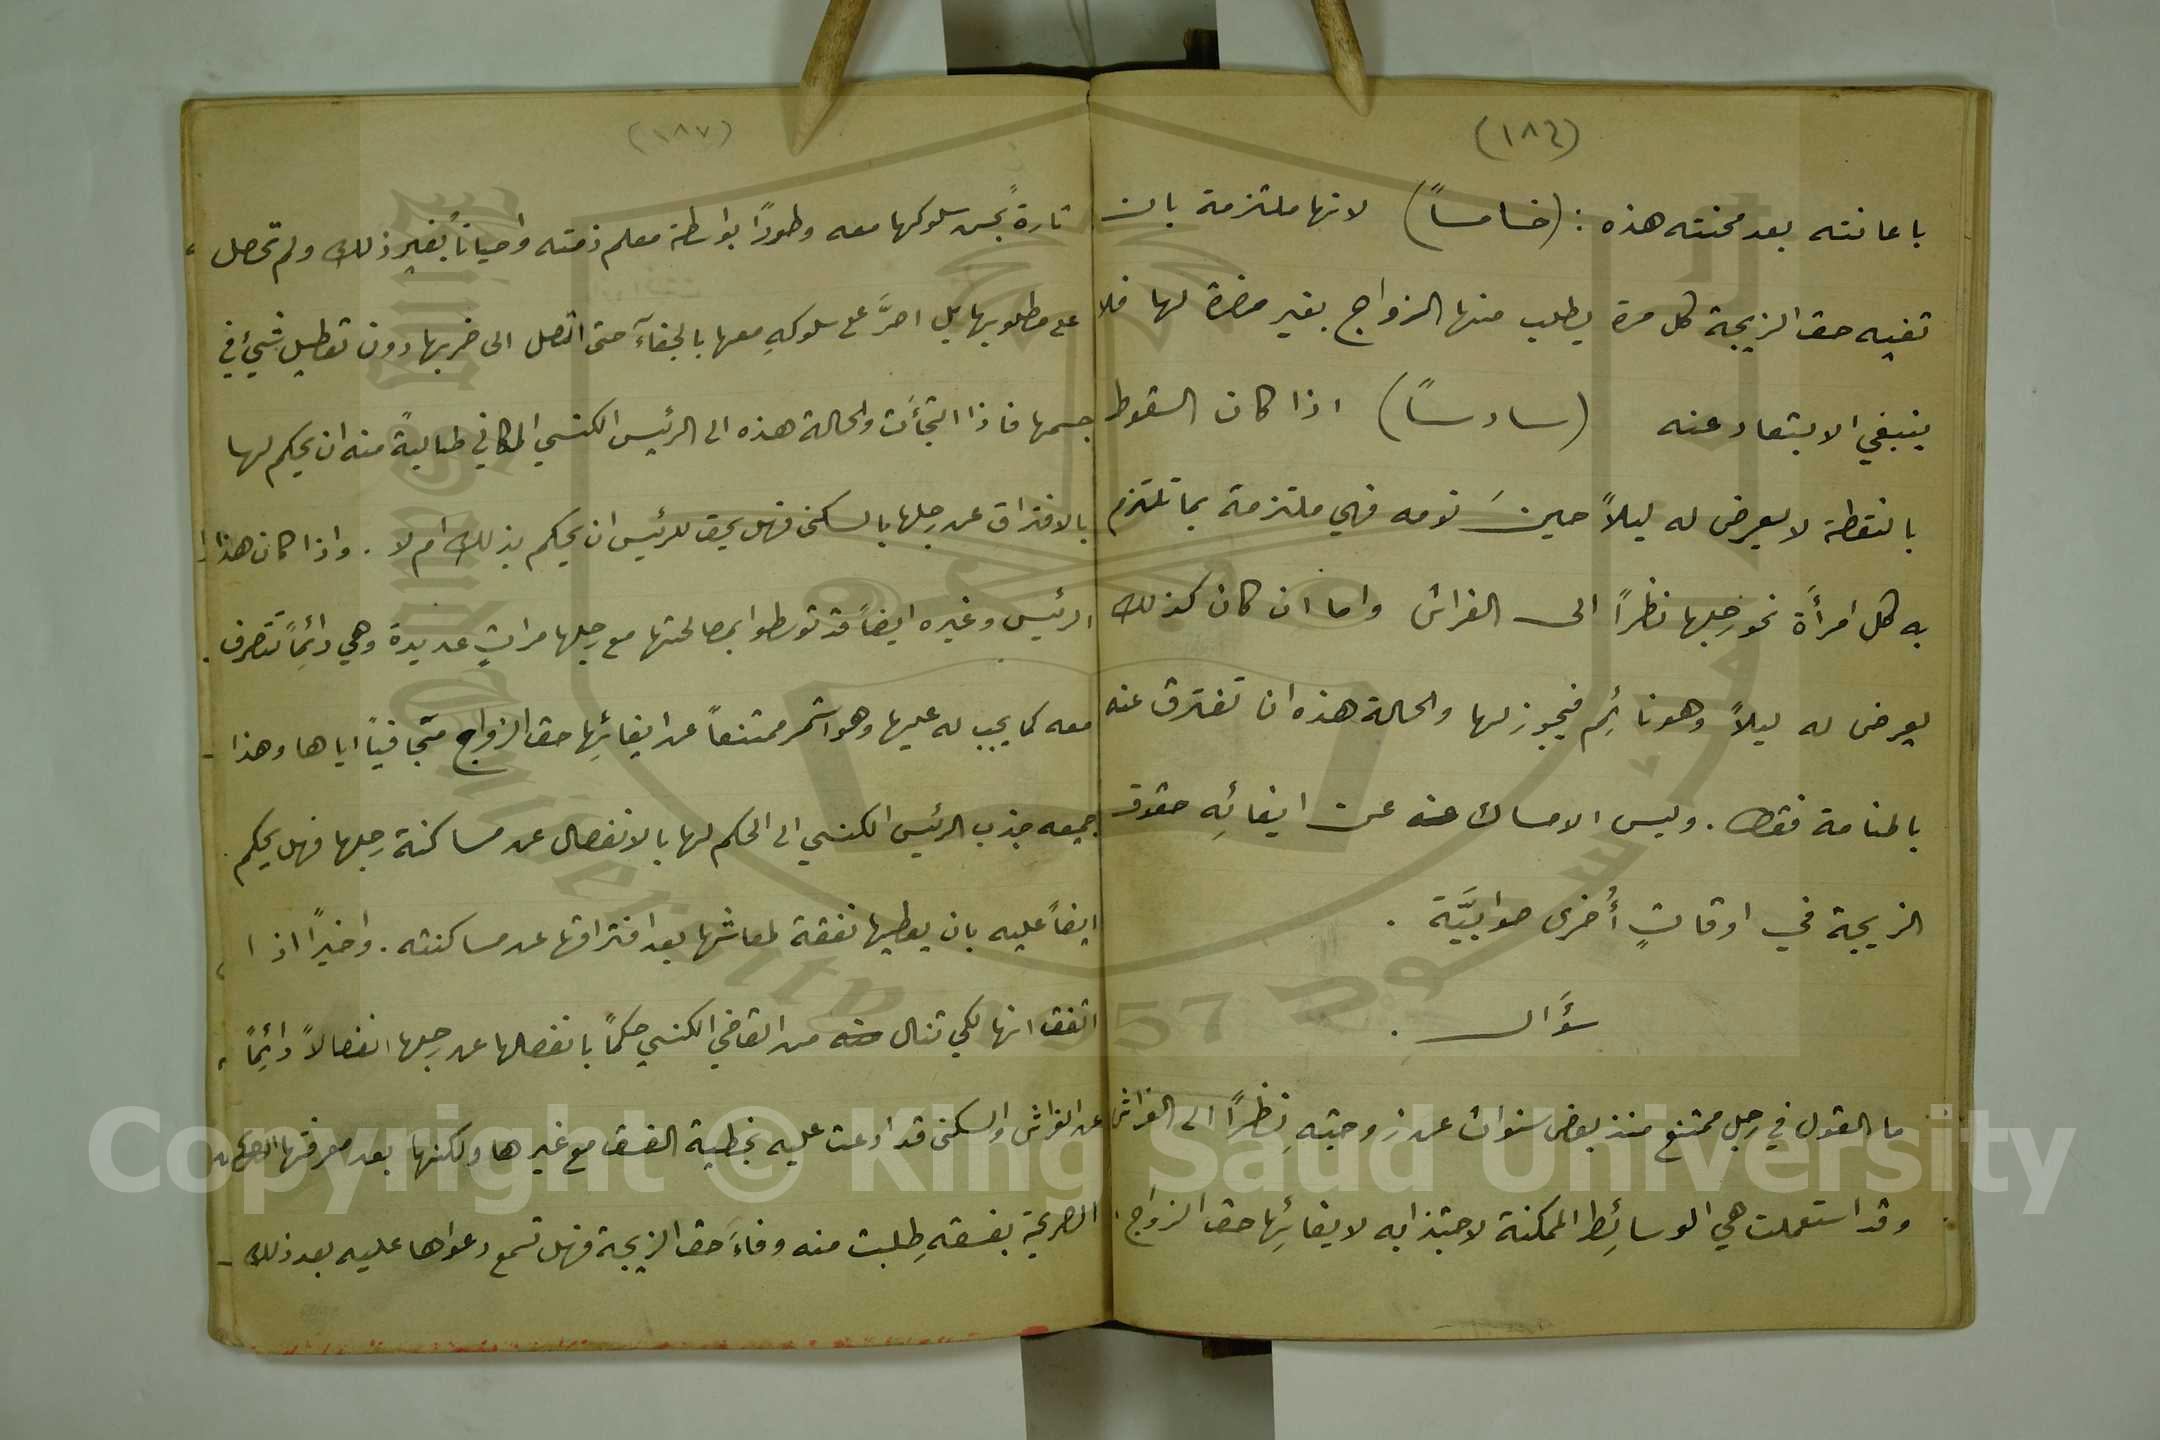 (١٨٦)
باعانته بعد محنته هذه : (خامساً) لانها ملتزمة بان
تفيه حق الزيجة كل مرة يطلب منها الزواج بغير مضرة لها فلا
ينبغي الابتعاد عنه (سادساً) اذا كان السقوط
بالنقطة لا يعرض له ليلاً حينَ نومه فهي ملتزمة بما تلتزم
به كل امرأة نحو رجلها نظراً الى الفراش واما ان كان كذلك
يعرض له ليلاً وهو نائِم فيجوز لها والحالة هذه ان تفترق عنه
بالمنامة فقط . وليس الامساك عن ايفائِهِ حقوق
الزيجة في اوقاتٍ أُخرى صوابيَّة .
سؤَال .
ما القول في رجل ممتنع منذ بعض سنوات عن زوجيتهِ نظراً الى الفراش
وقد استعملت هي الوسائِط الممكنة لاجتذابه لايفائِها حق الزواج
(١٨٧)
تارةً بحسن سلوكها معه وطوراً بواسطة معلم ذمته واحياناً بغير ذلك ولم تحصل
على مطلوبها بل اصرَّ على سلوكهِ معها بالجفآء حتى اتصل الى ضربها دون تعطيل شيءٍ في
جسمها فاذا التجأَت والحالة هذه الى الرئيس الكنسي المكاني طالبةً منه ان يحكم لها
بالافتراق عن رجلها بالسكنى فهل يحق للرئيس ان يحكم بذلك ام لا . واذا كان هذا
الرئيس وغيره ايضاً قد توسطوا بمصالحتها مع رجلها مراتٍ عديدة وهي دائِماً تتصرف
معه كما يجب له عليها وهو استمر ممتنعاً عن ايفائِها حق الزواج متجافياً اياها وهذا
جميعه جذب الرئيس الكنسي الى الحكم لها بالانفصال عن مساكنة رجلها فهل يحكم
ايضاً عليه بان يعطيها نفقة لمعاشها بعد افتراقها عن مساكنته . واخيراً اذا
اتفق انها لكي تنال من القاضي الكنسي حكماً بانفصالها عن رجلها انفصالاً دائِماً
عن الفراش والسكنى قد ادعت عليه بخطية الفسق مع غيرها ولكنها بعد معرفتها
الصريحة بفسقهِ طلبت منه وفاءَ حق الزيجة فهل تسمع دعواها عليه بعد ذلك
Copyright © King Saud University
1957